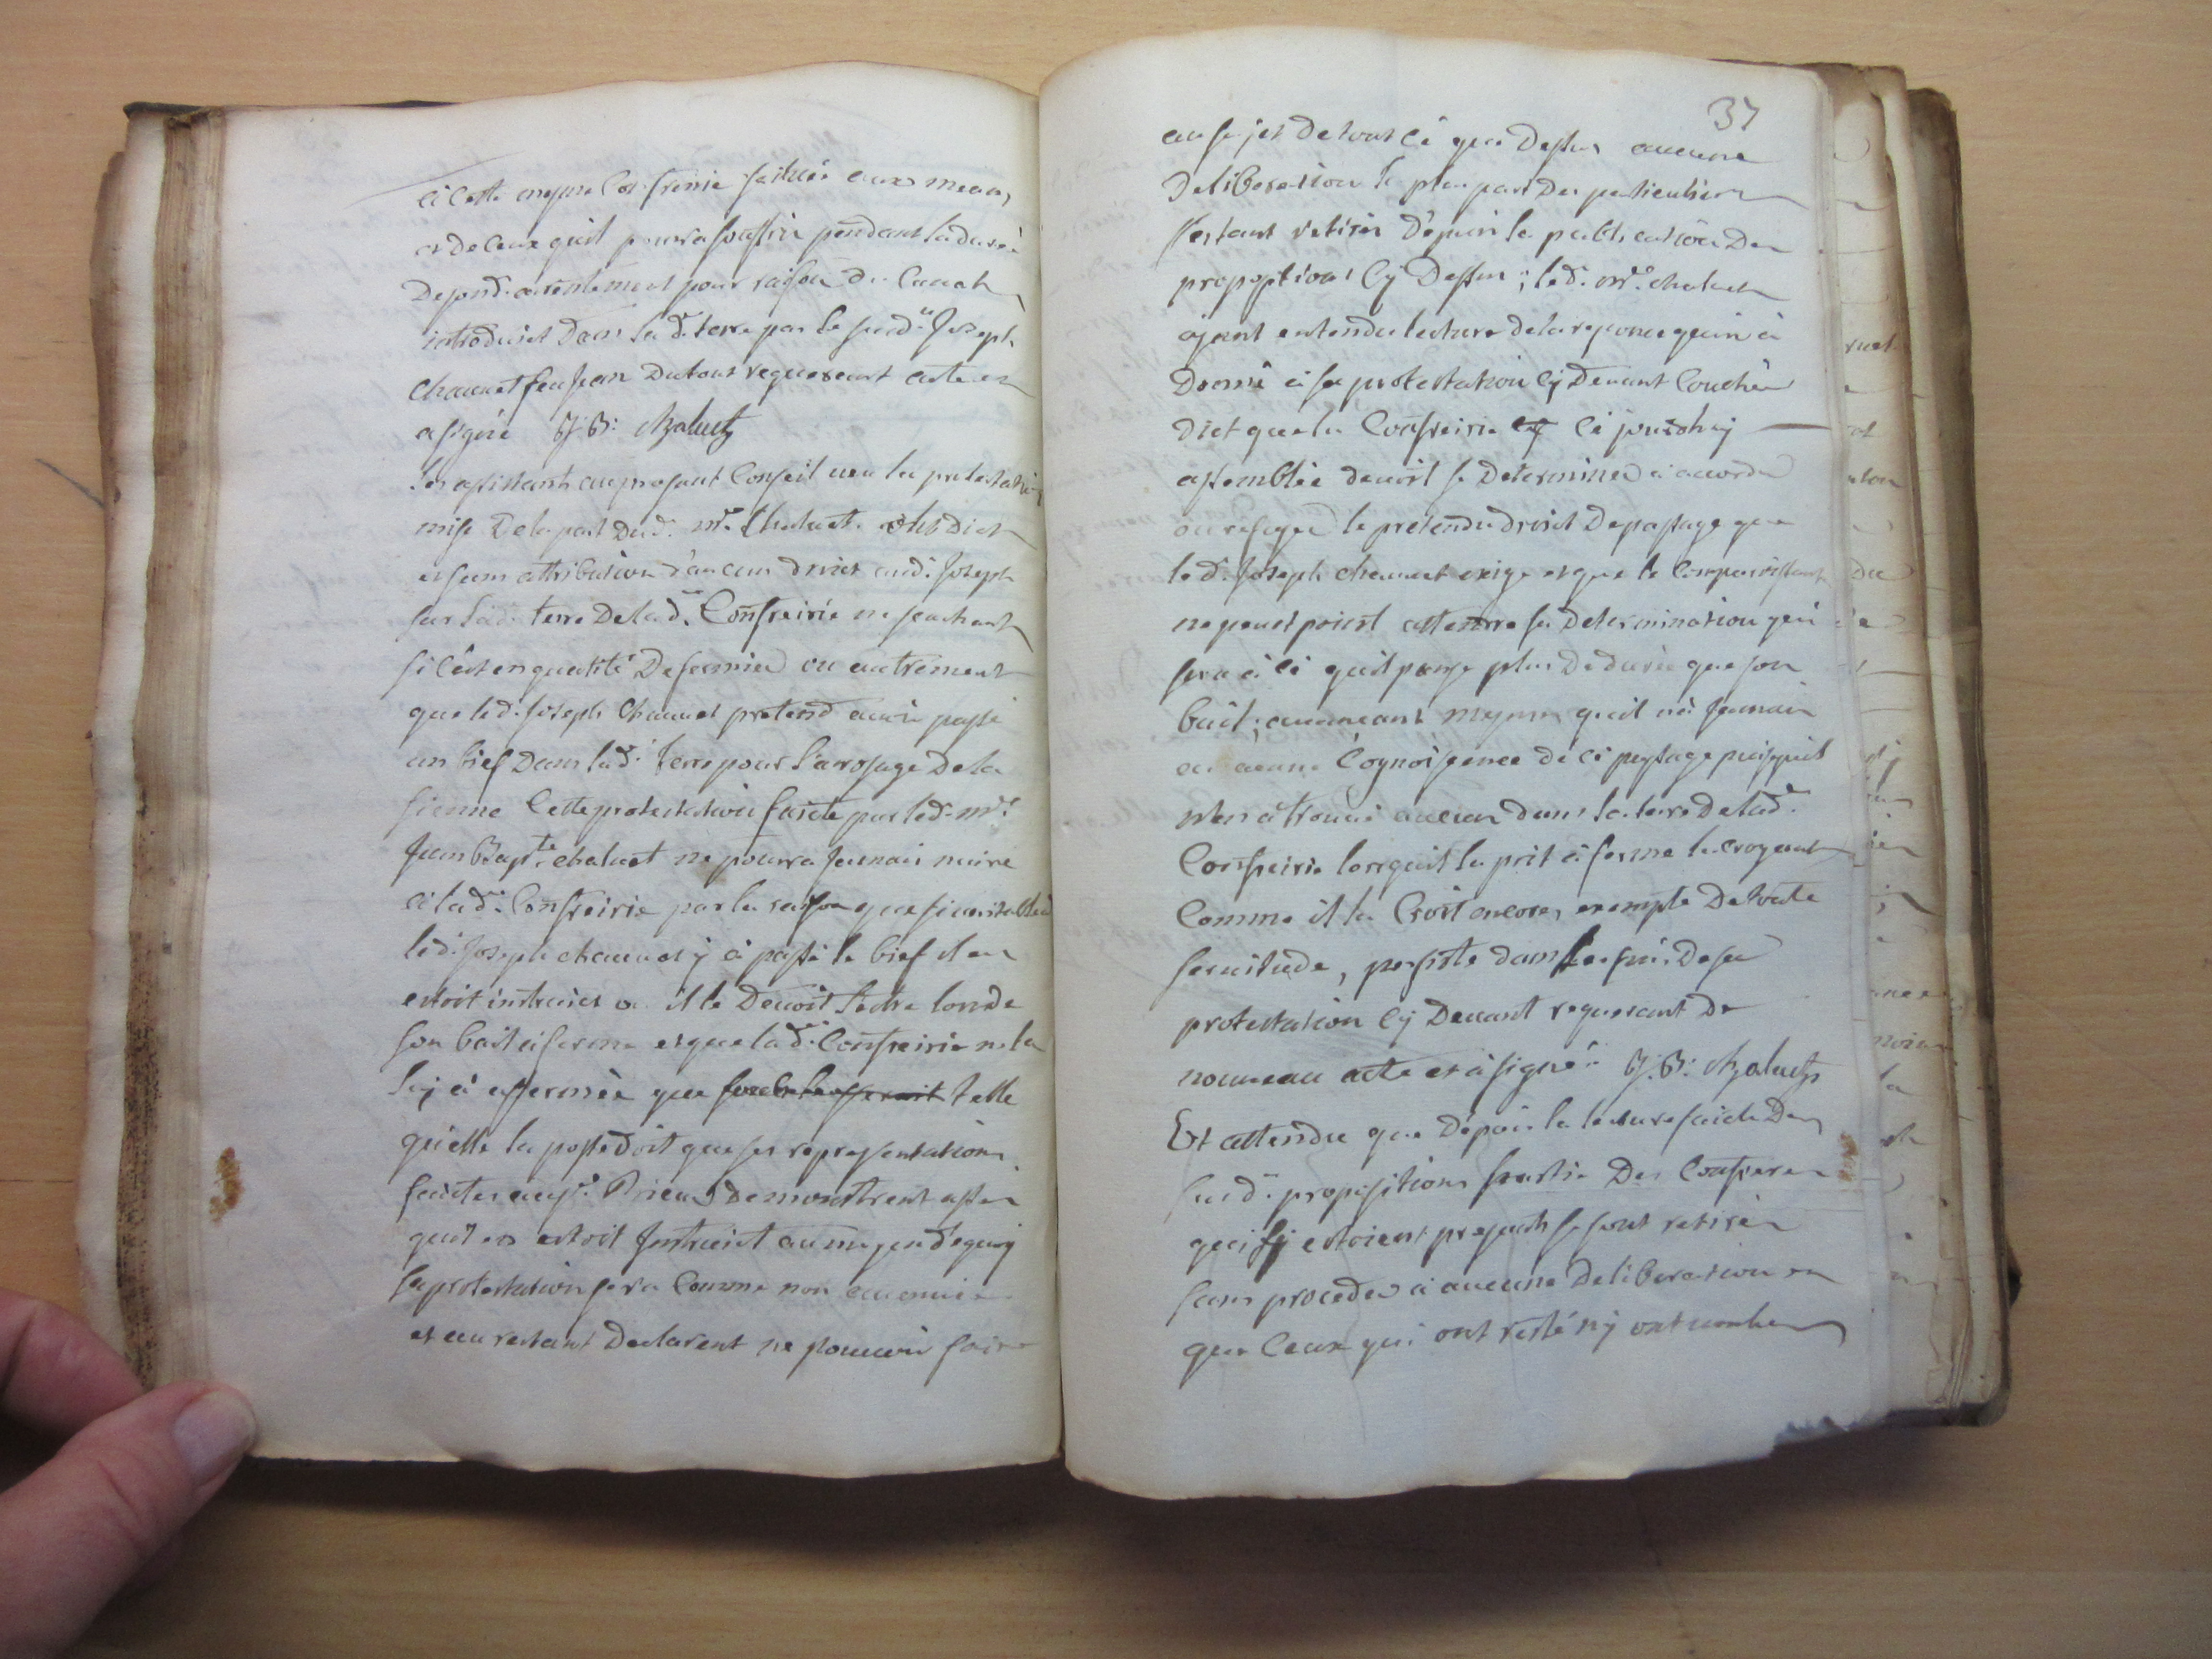 à cette mesme Confreirie scituée aux meam,
et de ceux quil pourra souffrir pendant la durée
De sond. arentement pour raison du canal
introduict Dans la d. terre par le susd. Joseph
Chauuet feu Jean Dutout requerant acte et
a signé J: B: Chaluet
Les assistants au present Conseil ueu la protestation
mise De la part Dud. mre. Chaluet ont Dict
et sans attribution d'aucun droict aud. Joseph
sur lad. terre De lad. Confreirie ne sachant
si c'est en qualité De fermier ou autrement
que led. Joseph Chauuet pretend auoir passé
un bief Dans lad. terre pour l'arrosage De la
sienne Cette protestation faicte par led. mre.
Jean Bapte. chaluet ne pourra Jamais nuire
à lad. Confreirie par la raison que si
led. Joseph chauuet y à passé le bief il en
estoit instruict ou il le Deuoit l'estre lors de
son bail à ferme et que lad. Confreirie ne la
luy à affermée que telle
qu'elle la possedoit que ses representations
faictes auxd. Prieurs Demonstrent assez
quil en estoit Instruict au moyen d'equoy
sa protestation sera Comme non auenue
et au restant Declarent ne pouuoir faire
37
au sujet De tout cé que Dessus aucune
Deliberation la plus part Des particuliers
s'estant retirés Dépuis la publication Des
propositions cy Dessus; led. mre. chaluet
ayant entendu lecture de la reponce quon à
Donné à sa protestation cy Deuant Couchée
Dict que la Confreirie cé jourdhuy
assemblée deuoit se Determiner à accorder
ou refuser le pretendu droict De passage que
led. Joseph chauuet exige et que le Comparoissant
ne peut point attendre sa Determination qui
sera à cé quil pense plus De durée que son
bail; auanceant mesmes quil n'à Jamais
eu aucune Cognoissance de cé passage puisquil
n'en à trouué aucun dans la terre De lad.
Confreirie lorsquil la prit à ferme la croyant
Comme il la Croit encores exempte De toute
seruitude, persiste dans les fins De sa
protestation cy Deuant requerant De
nouueau acte et à signé: J: B: Chaluet
Et attendu que Dépuis la lecture faicte Des
susd. propositions partie Des Confreres
qui sy estoient presents se sont retirés
sans proceder à aucune Deliberation et
que Ceux qui ont resté ny ont uoulu